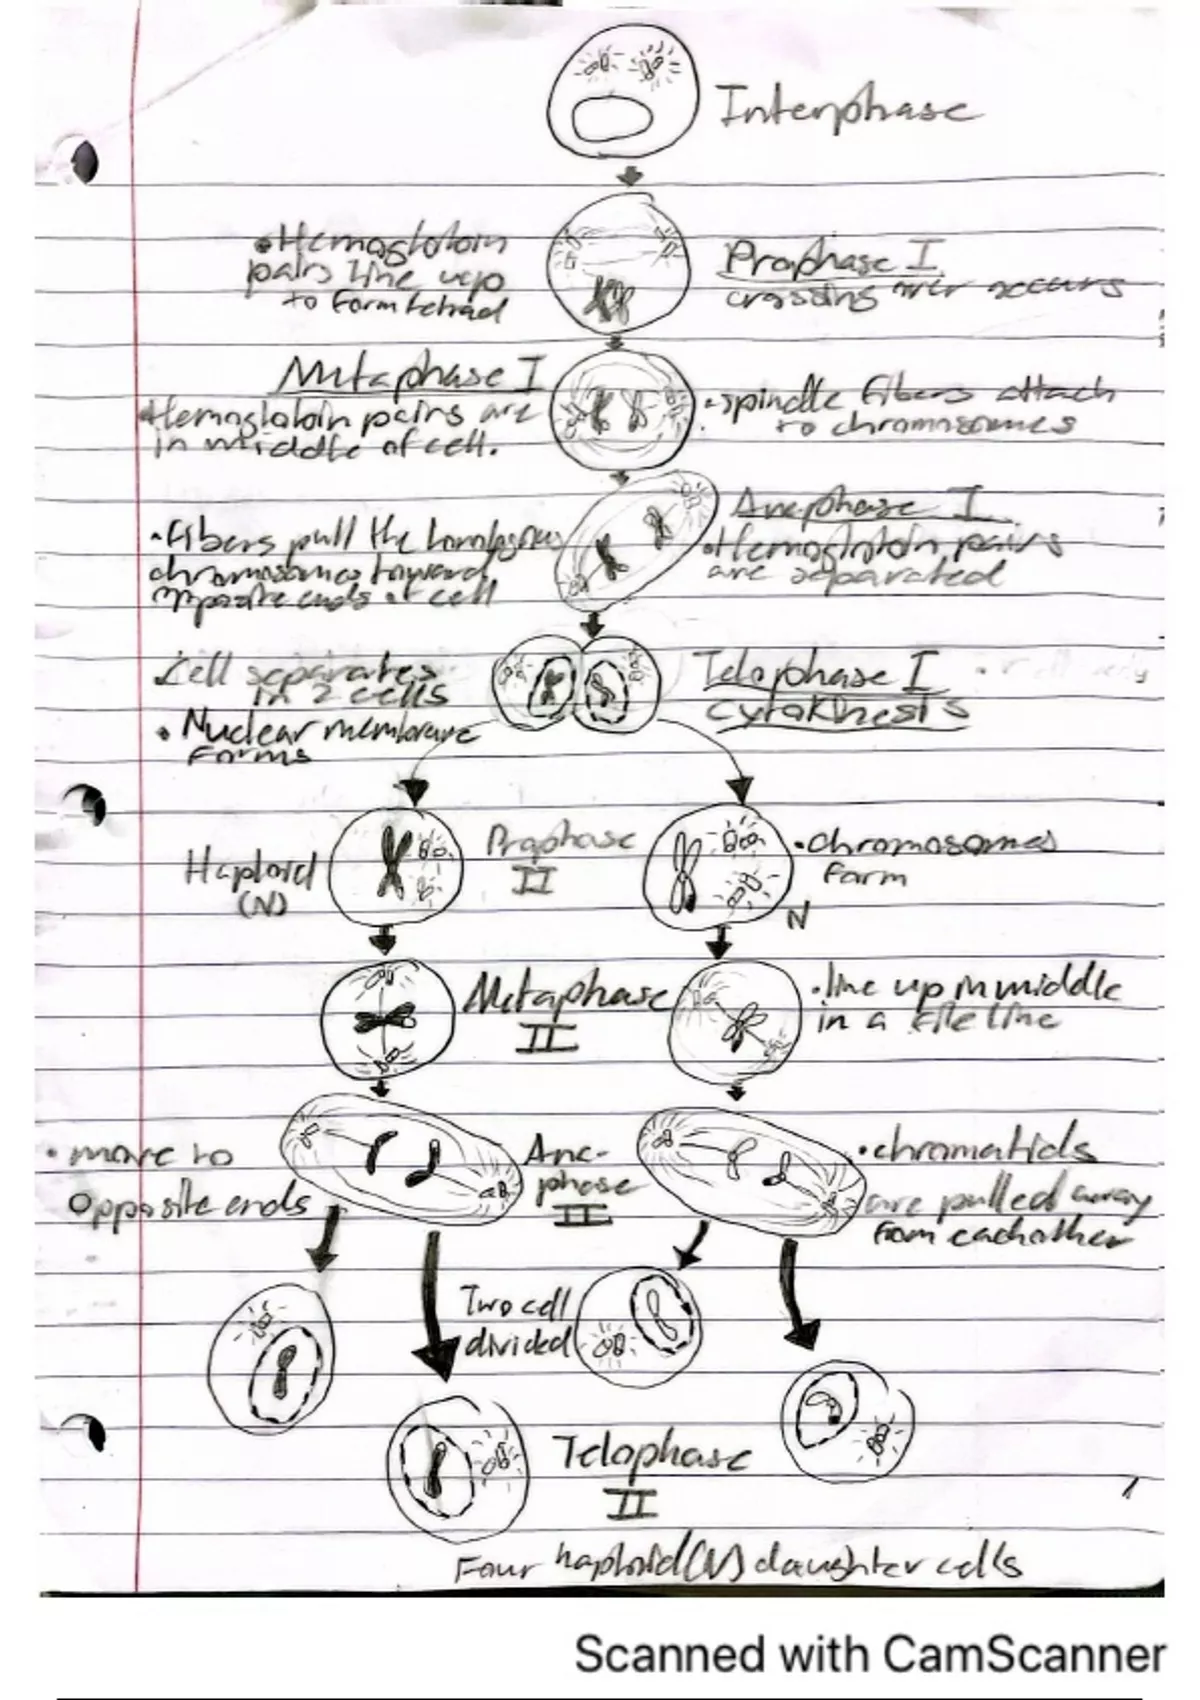 Interphase
• Hemogloloin
pairs line up
to form tetrad
Prophase I
crossing over occurs
Metaphase I
• Hemogloloin pairs are
in middle of cell.
• spindle fibers attach
to chromosomes
Anaphase I
• Hemogloloin pairs
are separated
• Fibers pull the homologous
chromosomes toward
opposite ends of cell
• Cell separates
in 2 cells
• Nuclear membrane
forms
Telophase I
cytokinesis
Haploid
(N)
Prophase
II
• chromosomes
form
N
Metaphase
II
• line up in middle
in a file line
• move to
opposite ends
Ana-
phase
II
• chromatids
are pulled away
from eachother
Two cell
divided
Telophase
II
Four haploid (N) daughter cells
Scanned with CamScanner